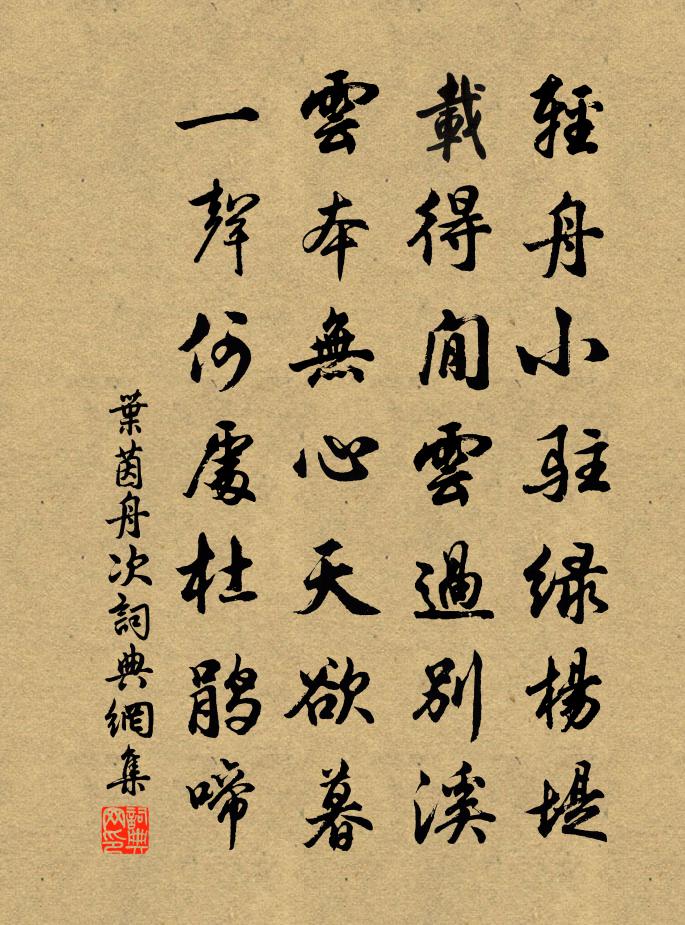 輕舟小駐綠楊堤
載得閒雲過別溪
雲本無心天欲暮
一聲何處杜鵑啼
葉茵舟次詞典網集
詞典網印